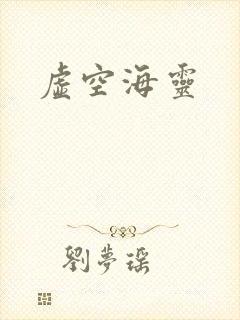 虛空海靈
劉夢瑶